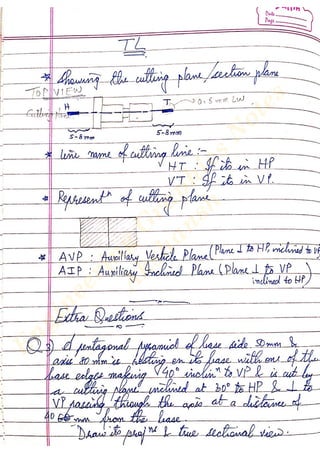 Date
Page
TL
* Showing the cutting plane/section plane
TOP VIEW
Cutting H T 0.5mm LW
5-8mm 5-8mm
* Line name of cutting line :-
HT : If its in HP
VT : If its in VP.
* Represent^n of cutting plane
* AVP : Auxillary Verticle Plane (Plane ⊥ to HP, inclined to VP)
AIP : Auxiliary Inclined Plane (Plane ⊥ to VP
inclined to HP)
Extra Questions
Q 3) A pentagonal pyramid of base side 30mm &
axis 80 mm is resting on its base with one of the
base edges making 40° inclin^n to VP & is cut by
a cutting plane inclined at 30° to HP & ⊥ to
VP passing through the axis at a distance of
40 mm from the base.
Draw its proj^n & true sectional view.